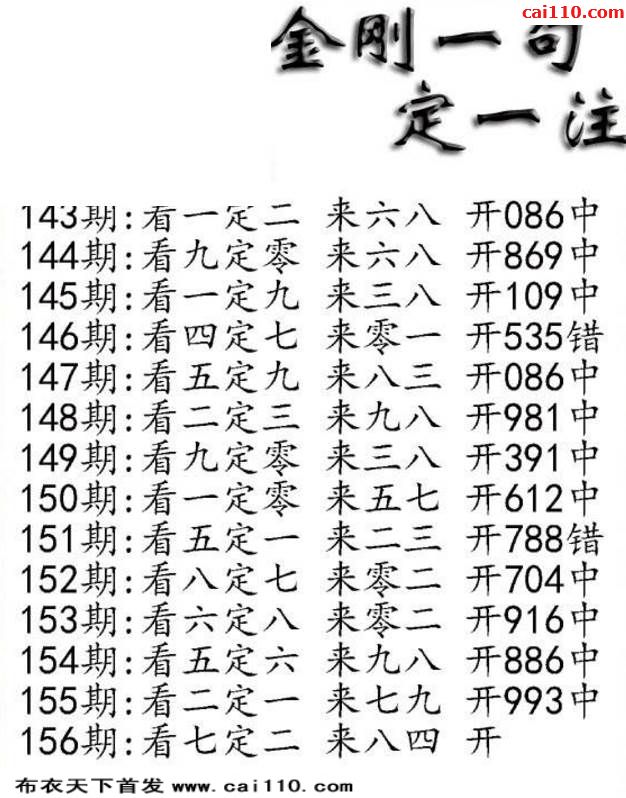 cai110.com
金刚一句
定一注
143期:看一定二 来六八 开086中
144期:看九定零 来六八 开869中
145期:看一定九 来三八 开109中
146期:看四定七 来零一 开535错
147期:看五定九 来八三 开086中
148期:看二定三 来九八 开981中
149期:看九定零 来三八 开391中
150期:看一定零 来五七 开612中
151期:看五定一 来二三 开788错
152期:看八定七 来零二 开704中
153期:看六定八 来零二 开916中
154期:看五定六 来九八 开886中
155期:看二定一 来七九 开993中
156期:看七定二 来八四 开
布衣天下首发 www.cai110.com